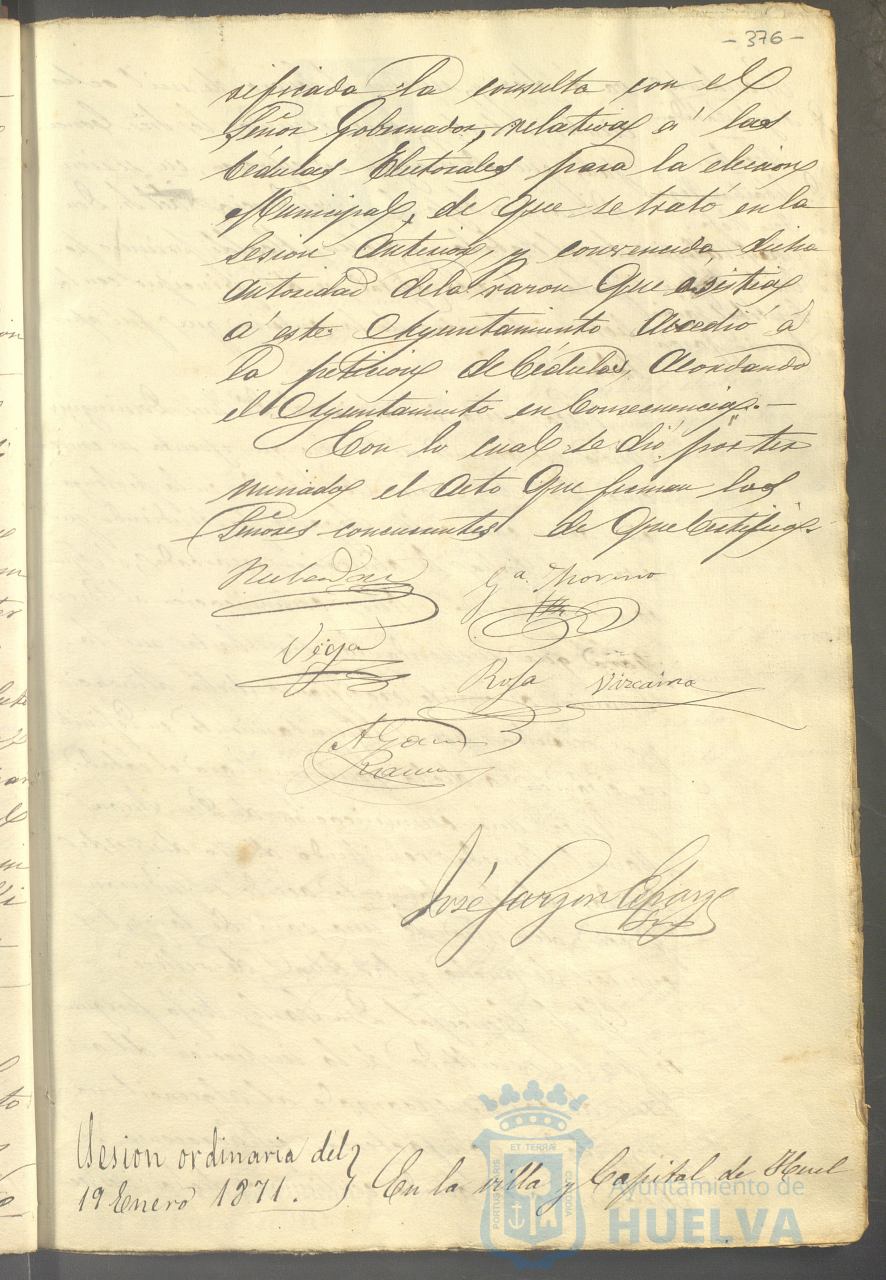 - 376 -
rificada la consulta con el
Señor Gobernador, relativa á las
Cédulas Electorales para la eleccion
Municipal, de que se trató en la
Sesion anterior, y convencida dicha
autoridad dela razon que asistia
á este Ayuntamiento accedió á
la peticion de Cédulas, acordando
el Ayuntamiento en Consecuencia.—
Con lo cual se dió por ter
minado el acto que firman los
Señores concurrentes de que Certifico.
Gª. Moreno
Vega
Rosa Vizcaino
José Garzon
Sesion ordinaria del
19 Enero 1871.
En la villa y Capital de Huel
ET TERRÆ
PORTUS MARIS
Ayuntamiento de
HUELVA